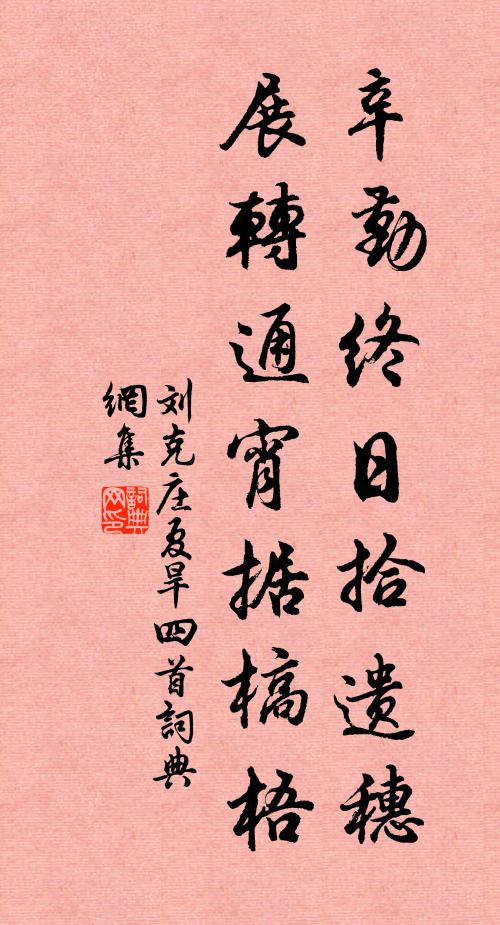 辛勤终日拾遗穗
展轉通宵据槁梧
刘克庄夏旱四首詞典
網集
詞典
网印